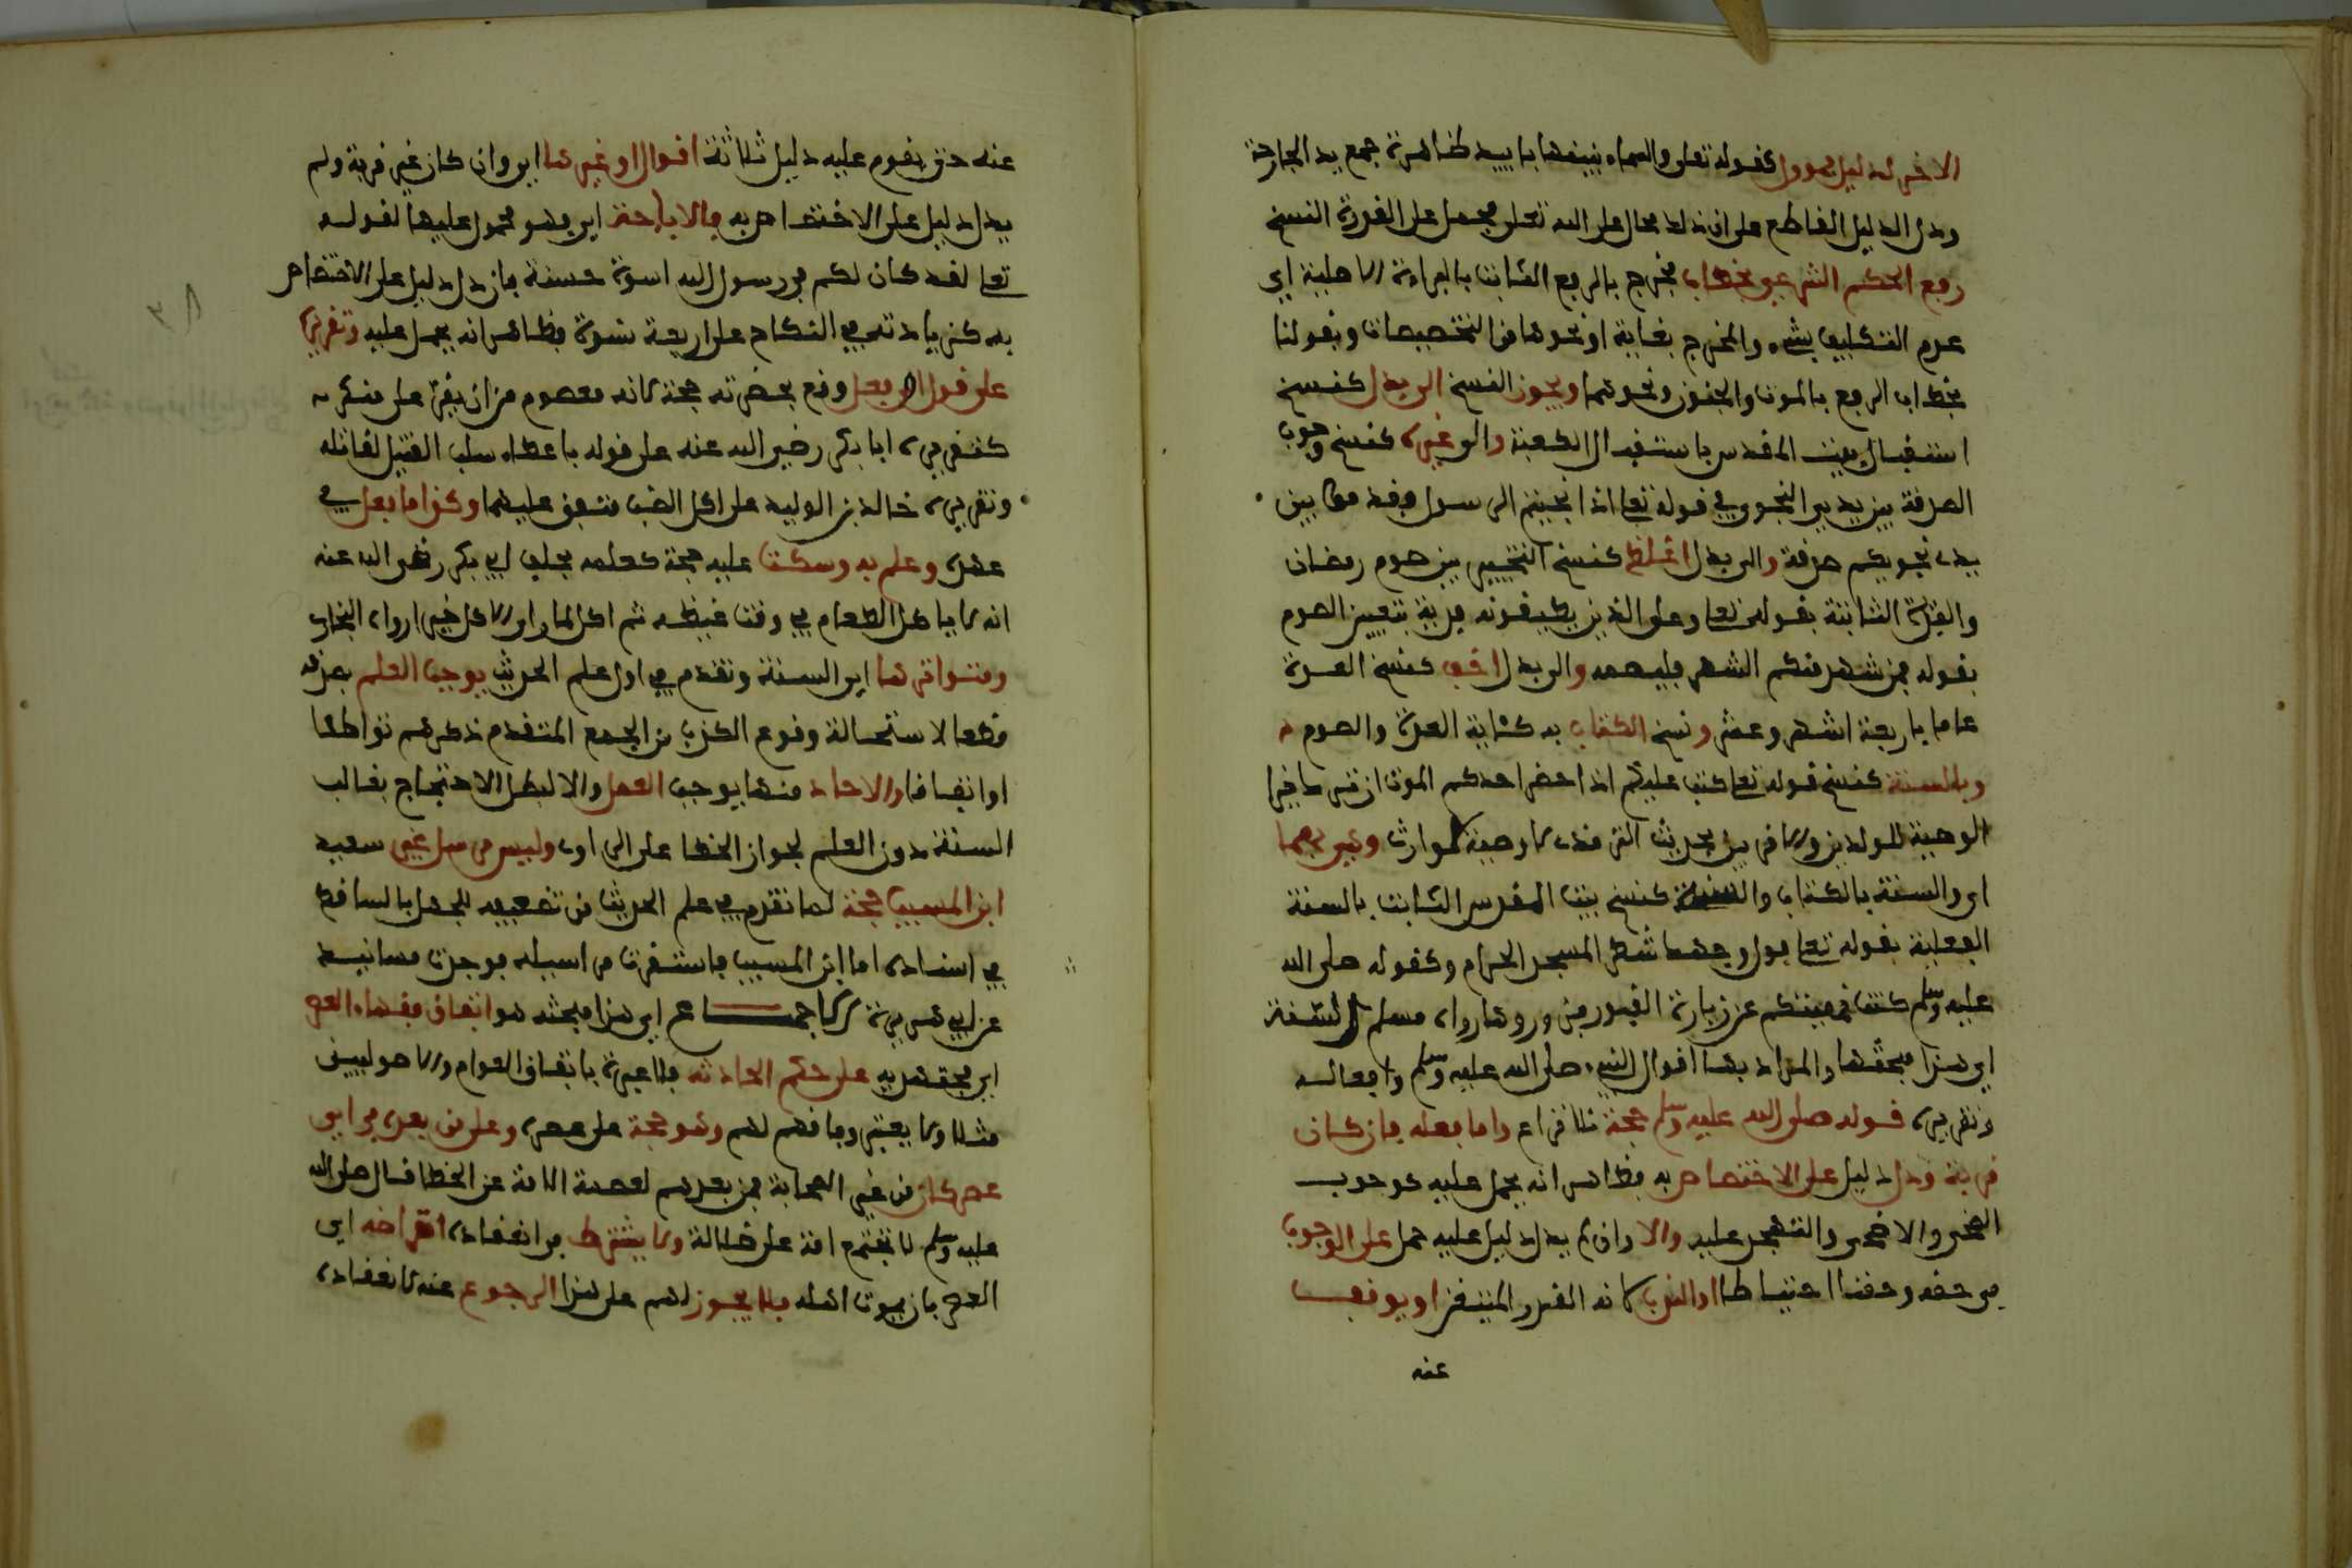 الاخر لدليل مؤول كقوله تعلى والسماء بنينها باييد ظاهرة جمع يد الجارحة
ودل الدليل القاطع على ان ذلك محال على الله تعلى فحمل على القدرة النسخ
رفع الحكم الشرعي بخطاب فخرج بالرفع الثابت بالبراءة الاصلية اي
عدم التكليف بشيء والمخرج بغاية او نحوها من التخصيصات وبقولنا
بخطاب الرفع بالموت والجنون ونحوهما ويجوز النسخ الى بدل كنسخ
استقبال بيت المقدس باستقبال الكعبة والى غيره كنسخ وجوب
الصدقة بين يدي النجوى في قوله تعا اذا نجيتم الرسول فقدموا بين
يدي نجويكم صدقة والى بدل اغلظ كنسخ التخيير بين صوم رمضان
والفدية الثابتة بقوله تعا وعلى الذين يطيقونه فدية بتعيين الصوم
بقوله فمن شهد منكم الشهر فليصمه والى بدل اخف كنسخ العدة
عاما باربعة اشهر وعشر ونسخ الكتاب به كئاية العدة والصوم
وبالسنة كنسخ قوله تعا كتب عليكم اذا حضر احدكم الموت ان ترك خيرا
الوصية للولدين والاقربين بحديث الترمذي لا وصية لوارث وغيرهما
اي والسنة بالكتاب والسنة كنسخ بيت المقدس الثابت بالسنة
الفعلية بقوله تعا فول وجهك شطر المسجد الحرام وكقوله صلى الله
عليه وسلم كنت نهيتكم عن زيارة القبور فزوروها رواه مسلم السنة
اي هذا مبحثها والمراد بها اقوال النبيء صلى الله عليه وسلم وافعاله
وتقريره قوله صلى الله عليه وسلم حجة بلا نزاع واما فعله فان كان
قربة ودل دليل على الاختصاص به فظاهر انه يحمل عليه كوجوب
الضحى والاضحى والتهجد عليه والا وان لم يدل دليل عليه حمل على الوجوب
في حقه وحقنا احتياطا او الندب لانه القدر المتيقن او يوقف
عنه
عنه حتى يقوم عليه دليل ثلاثة اقوال او غيرها اي وان كان غير قربة ولم
يدل دليل على الاختصاص به فالاباحة اي فهو محمول عليها لقوله
تعا لقد كان لكم في رسول الله اسوة حسنة فان دل دليل على الاختصاص
به كزيادته في النكاح على اربعة نسوة فظاهر انه يحمل عليه وتقريره
على قول او فعل وقع بحضرته حجة لانه معصوم من ان يقر على منكر
كتقريره ابا بكر رضي الله عنه على قوله باعطاء سلب القتيل لقاتله
وتقريره خالد بن الوليد على اكل الضب متفق عليهما وكذا ما فعل في
عهده وعلم به وسكت عليه حجة كعلمه بحلف ابي بكر رضي الله عنه
انه لا ياكل الطعام في وقت غيظه ثم اكل لما راى الاكل خيرا رواه البخاري
ومتواترها اي السنة وتقدم في اول علم الحديث يوجب العلم بصدقه
قطعا لاستحالة وقوع الكذب من الجمع المتقدم ذكرهم تواطئا
او اتفاقا والاحاد منها يوجب العمل والا لبطل الاحتجاج بغالب
السنة دون العلم لجواز الخطا على الراوي وليس مرسل غير سعيد
ابن المسيب حجة لما تقدم في علم الحديث من تضعيفه للجهل بالساقط
في اسناده اما ابن المسيب فاستقريت مراسيله فوجدت مسانيد
عن ابي هريرة الاجماع اي هذا مبحثه هو اتفاق فقهاء العصر
اي مجتهديه على حكم الحادثة فلا عبرة باتفاق العوام والاصوليين
مثلا ولا يعتبر وفاقهم لهم وهو حجة على عصره وعلى من بعده في اي
عصر كان من غير الصحابة فمن بعدهم لعصمة الامة عن الخطا قال صلى الله
عليه وسلم لا تجتمع امة على ضلالة ولا يشترط في انعقاده انقراضه اي
العصر بان يموت اهله فلا يجوز لهم على هذا الرجوع عنه لانعقاده